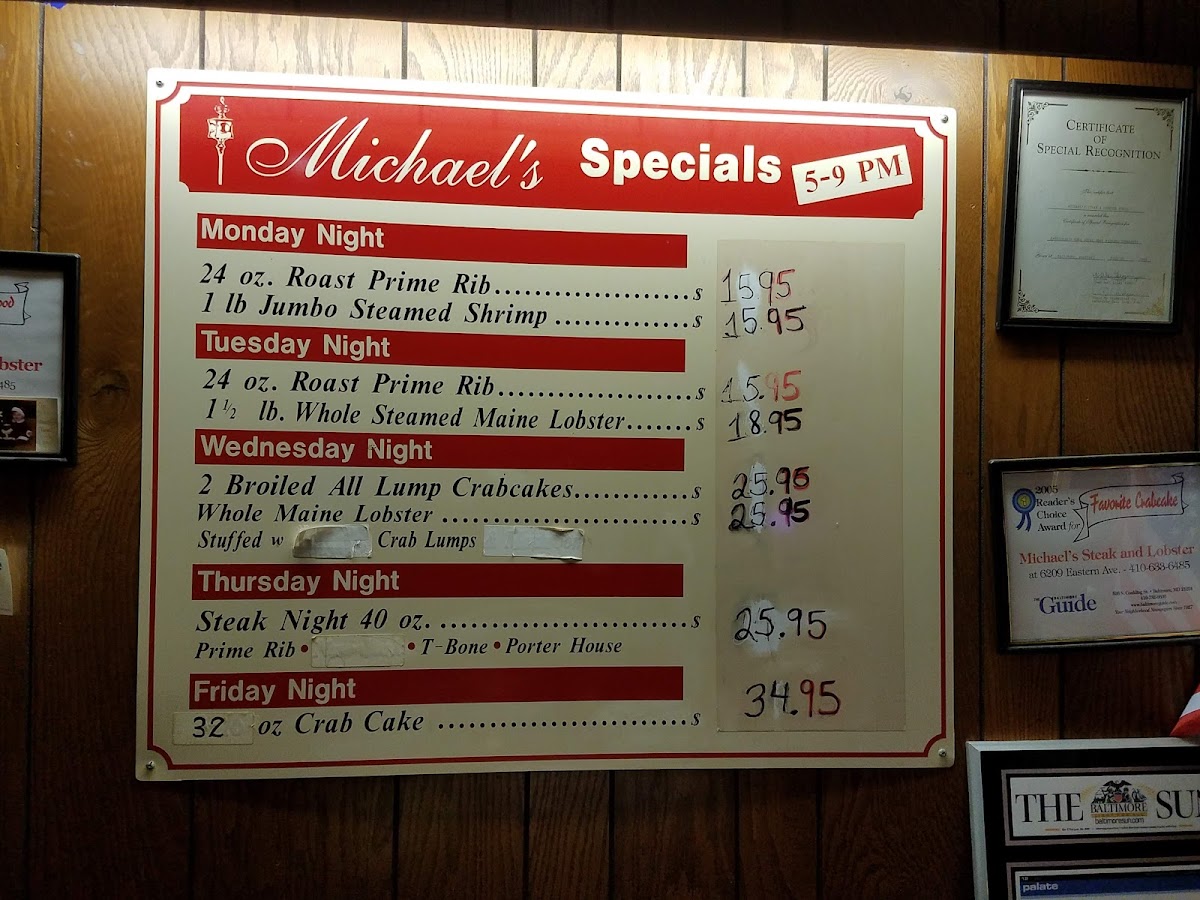 Michael's Specials 5-9 PM
Monday Night
24 oz. Roast Prime Rib....................$ 15.95
1 lb Jumbo Steamed Shrimp ..............$ 15.95
Tuesday Night
24 oz. Roast Prime Rib.....................$ 15.95
1 1/2 lb. Whole Steamed Maine Lobster.......$ 18.95
Wednesday Night
2 Broiled All Lump Crabcakes............$ 25.95
Whole Maine Lobster .........................$ 25.95
Stuffed w Crab Lumps
Thursday Night
Steak Night 40 oz. ...........................$ 25.95
Prime Rib • • T-Bone • Porter House
Friday Night
32 oz Crab Cake ..........................$ 34.95
ood
bster
485
Certificate
of
Special Recognition
2005
Reader's
Choice
Award for
Favorite Crabcake
Michael's Steak and Lobster
at 6209 Eastern Ave. - 410-633-6485
Guide
THE BALTIMORE SU
baltimoresun.com
palate